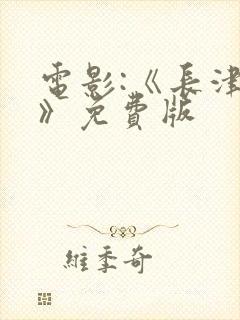 電影:《長津
》免費版
維季奇